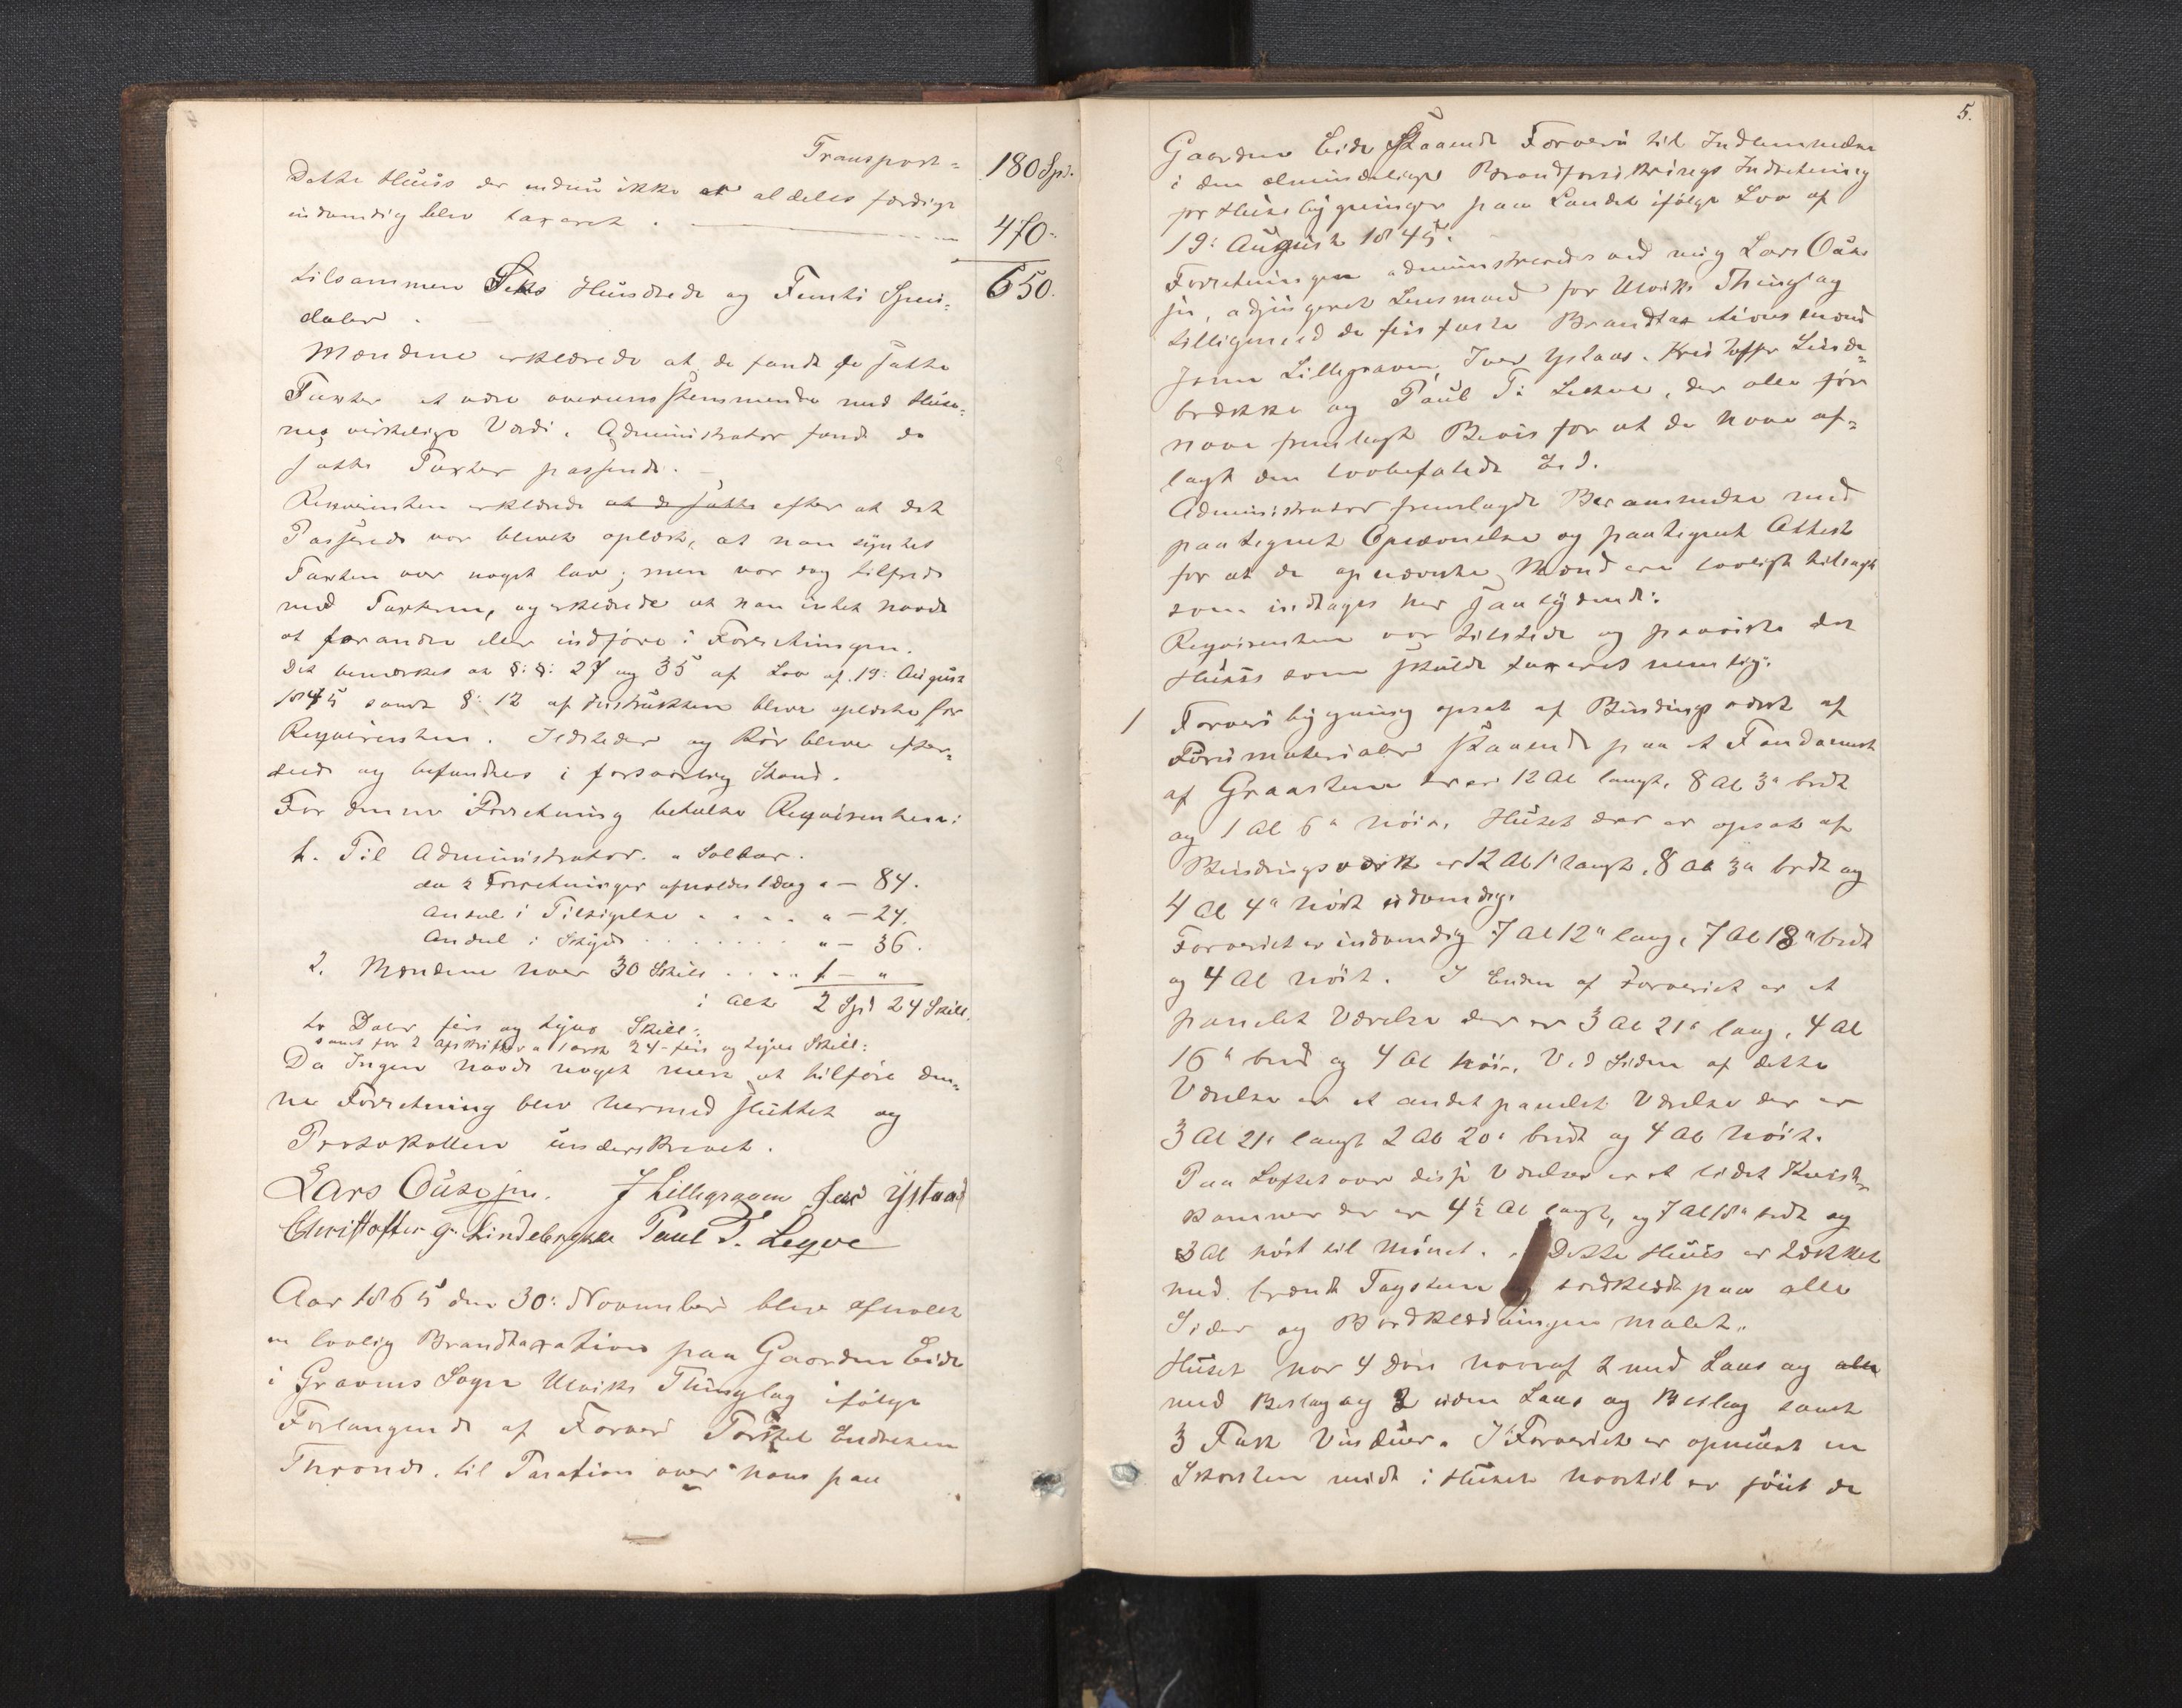 Transport =
180 Spd.
Dette Huus der endnu ikke er aldeles færdigt
indvendig blev taxeret .
470 "
tilsammen Seks Hundrede og Femti Speci=
650.
daler .
Mændene erklærede at de fandt de satte
Taxter at være overensstemmende med Huse=
nes virkelige Værdi. Administrator fandt de
satte Taxter passende. –
Reqvirenten erklærede at de satte efter at det
Passerede var blevet oplæst, at han syntes
Taxten var noget lav; men var dog tilfreds
med Taxterne, og erklærede at han intet havde
at forandre eller indføre i Forretningen.
Det bemærkes at §: §: 27 og 35 af Lov af 19: August
1845 samt §: 12 af Instruksen bleve oplæste for
Reqvirenten. Ildsteder og Rør bleve efter=
seede og befundnes i forsvarlig Stand.
For denne Forretning betalte Reqvirenten:
1. Til Administrator. " Soldaer.
da 2 Forretninger afholdes 1 dag " – 84.
Andel i Tilsigelse . . . . " – 24.
Andel i Skyds . . . . . . " – 36.
2. Mændene hver 30 Skill . . . . 1 – "
i Alt 2 Spd 24 Skill.
to Daler, fire og tyve Skill:
samt for 2 Afskrifter a 1 ort 24 – fire og tyve Skill:
Da Ingen havde noget mere at tilføie den=
ne Forretning blev hermed sluttet og
Protokollen underskrevet.
Lars Ouse jun. J Lillegraven Iver Ystaas
Christoffer G. Lindebrekke Paul T. Legve
Aar 1865 den 30: November blev afholdt
en lovlig Brandtaxation paa Gaarden Eide
i Gravens Sogn Ulviks Thinglag ifølge
Forlangende af Farver Torkel Endresen
Thronds. til Taxation over hans paa
5.
Gaarden Eide staaende Farveri til Indlemmelse
i den almindelige Brandforsikkrings Indretning
for Huusbygninger paa Landet ifølge Lov af
19: August 1845.
Forretningen administreredes ved mig Lars Ouse
jun, adjungeret Lensmand for Ulviks Thinglag
tilligemed de fire faste Brandtaxationsmænd
Joen Lillegraven, Iver Ystaas. Kristoffer Linde=
brække og Paul T: Lekve, der alle før
have fremlagt Bevis for at de have af=
lagt den lovbefalede Eed.
Administrator fremlagde Berammelse med
paategnet Opnævnelse og paategnet Attest
for at de opnævnte Mænd ere lovligt tilsagt
som indtages her saalydende:
Reqvirenten var tilstede og paaviste det
Huus som skulde taxeres nemlig:
1 Farveribygning opsat af Bindingsværk af
Furumaterialer staaende paa et Fundament
af Graasteen der er 12 Al langt, 8 Al 3" bredt
og 1 Al 6" høit. Huset der er opsat af
Bindingsværk er 12 Al 1" langt, 8 Al 3" bredt og
4 Al 4" høit udvendig.
Farveriet er indvendig 7 Al 12" lang, 7 Al 18" bredt
og 4 Al høit. I Enden af Farveriet er et
panelet Værelse der er 3 Al 21" lang, 4 Al
16" bred og 4 Al høit, Ved Siden af dette
Værelse er et andet panelet Værelse der er
3 Al 21" langt 2 Al 20" bredt og 4 Al høit.
Paa Loftet over disse Værelser er et lidet Kvist=
kammer der er 4½ Al langt, og 7 Al 18" bredt og
3 Al høit til Mønet. . Dette Huus er tækket
med brændt Tagsteen og bordklædt paa alle
Sider og Bordklædningen malet.
Huset har 4 Døre hvoraf 2 med Laas og alle
med Beslag og 2 uden Laas og Beslag samt
3 Fakk Vinduer. I Farveriet er opmuret en
Skorsten midt i Huset hvortil er føiet de